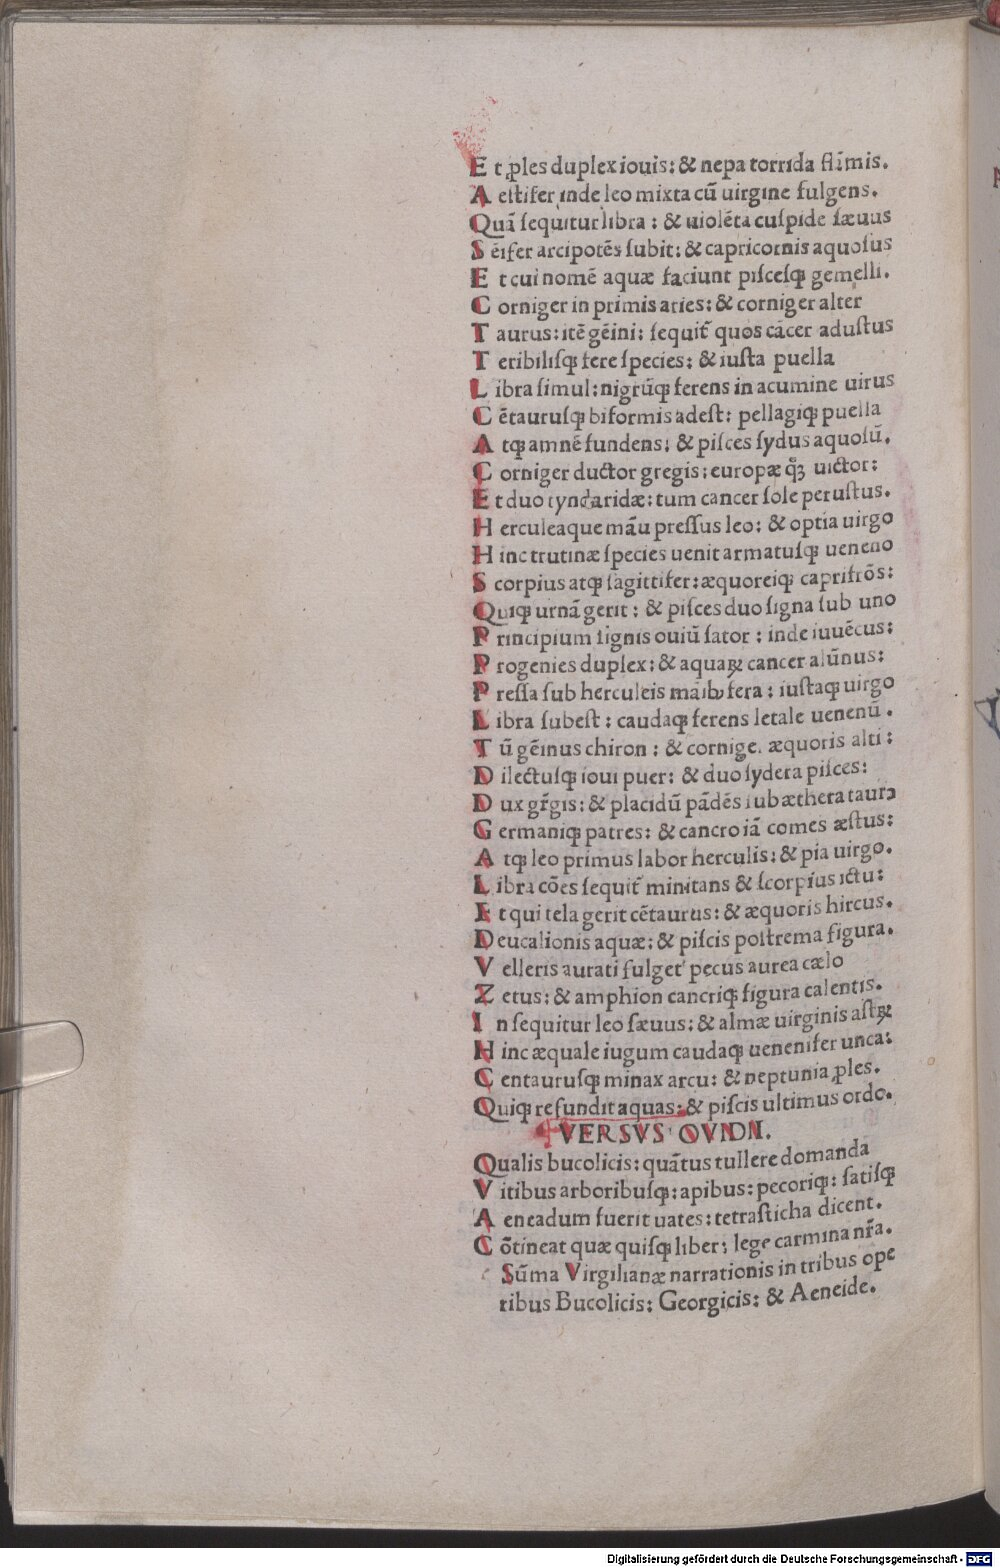 E t ꝓles duplex iouis: & nepa torrida flāmis.
A eſtifer inde leo mixta cū uirgine fulgens.
Quā ſequitur libra : & uiolēta cuſpide ſæuus
S ēifer arcipotēs ſubit: & capricornis aquoſus
E t cui nomē aquæ faciunt piſceſqꝫ gemelli.
C orniger in primis aries: & corniger alter
T aurus: itē gēini: ſequit̄ quos cācer aduſtus
T eribiliſqꝫ fere ſpecies: & iuſta puella
L ibra ſimul: nigrūqꝫ ferens in acumine uirus
C ētauruſqꝫ biformis adeſt: pellagiqꝫ puella
A tqꝫ amnē fundens: & piſces ſydus aquoſū.
C orniger ductor gregis: europæ qͦꝫ uictor:
E t duo tyndaridæ: tum cancer ſole peruſtus.
H erculeaque māu preſſus leo: & optia uirgo
H inc trutinæ ſpecies uenit armatuſqꝫ ueneno
S corpius atqꝫ ſagittifer: æquoreiqꝫ caprifrōs:
Quiqꝫ urnā gerit : & piſces duo ſigna ſub uno
P rincipium ſignis ouiū ſator : inde iuuēcus:
P rogenies duplex: & aquaꝝ cancer alūnus:
P reſſa ſub herculeis māibꝫ fera : iuſtaqꝫ uirgo
L ibra ſubeſt : caudaqꝫ ferens letale uenenū .
T ū gēinus chiron : & cornige. æquoris alti :
D ilectuſqꝫ ioui puer: & duo ſydera piſces:
D ux gr̄gis: & placidū pādēs ſub æthera taura
G ermaniqꝫ patres: & cancro iā comes æſtus:
A tqꝫ leo primus labor herculis: & pia uirgo.
L ibra cōes ſequit̄ minitans & ſcorpius ictu:
E t qui tela gerit cētaurus: & æquoris hircus.
D eucalionis aquæ: & piſcis poſtrema figura.
V elleris aurati fulget pecus aurea cælo
Z etus: & amphion cancriqꝫ figura calentis.
I n ſequitur leo ſæuus: & almæ uirginis aſtꝝ
H inc æquale iugum caudaqꝫ uenenifer unca:
C entauruſqꝫ minax arcu: & neptunia ꝓles.
Quiqꝫ refundit aquas: & piſcis ultimus ordo.
VERSVS OVIDII.
Qualis bucolicis: quātus tullere domanda
V itibus arboribuſqꝫ: apibus: pecoriqꝫ: ſatiſqꝫ
A eneadum fuerit uates: tetraſticha dicent.
C ōtineat quæ quiſqꝫ liber: lege carmina nr̄a.
Sūma Virgilianæ narrationis in tribus ope
ribus Bucolicis: Georgicis: & Aeneide.
Digitalisierung gefördert durch die Deutsche Forschungsgemeinschaft - DFG